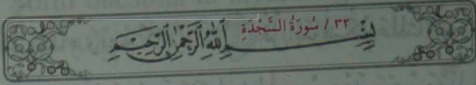 ٣٢ / سُورَةُ السَّجْدَةِ
بِسْمِ اللَّهِ الرَّحْمَٰنِ الرَّحِيمِ